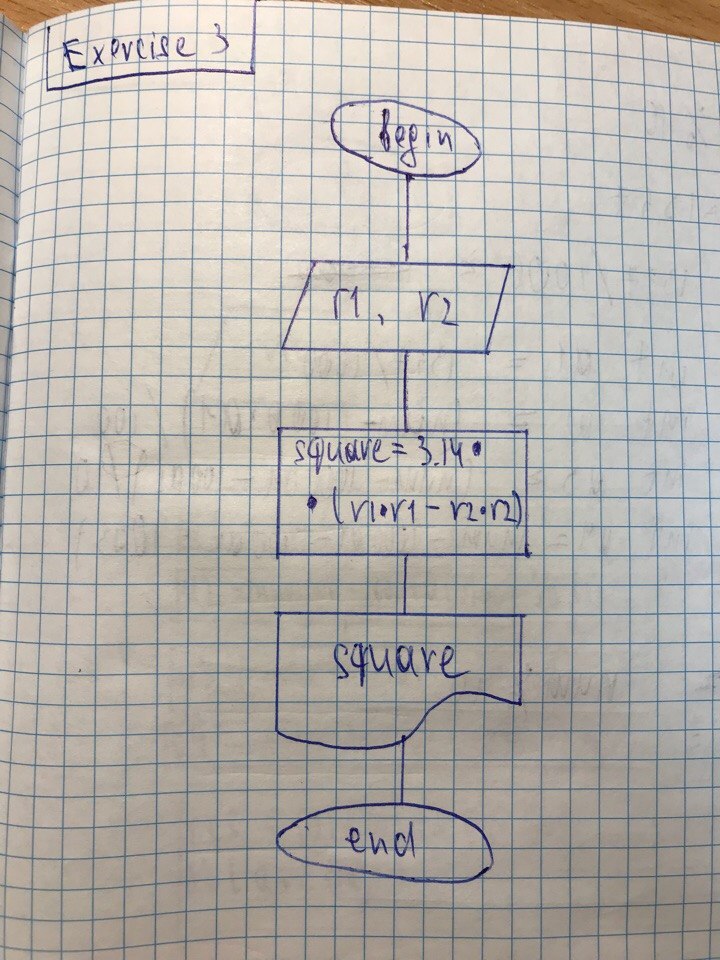 Exercise 3
begin
r1, r2
square = 3.14 •
• (r1•r1 - r2•r2)
square
end